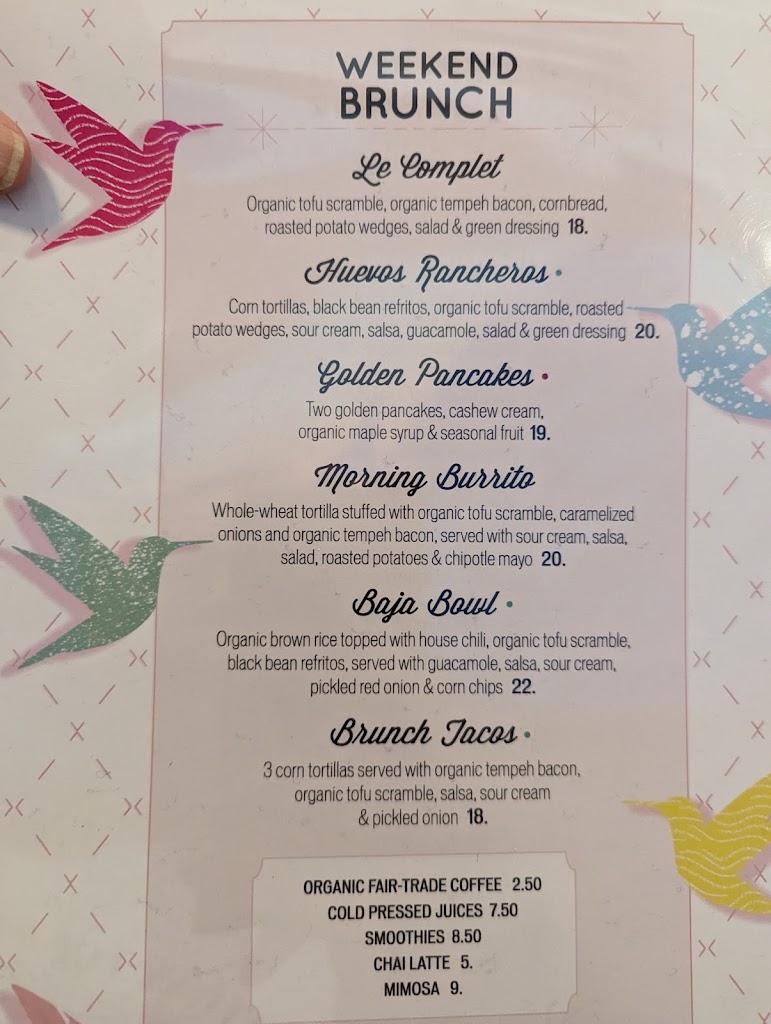 WEEKEND
BRUNCH
Le Complet
Organic tofu scramble, organic tempeh bacon, cornbread,
roasted potato wedges, salad & green dressing 18.
Huevos Rancheros •
Corn tortillas, black bean refritos, organic tofu scramble, roasted
potato wedges, sour cream, salsa, guacamole, salad & green dressing 20.
Golden Pancakes •
Two golden pancakes, cashew cream,
organic maple syrup & seasonal fruit 19.
Morning Burrito
Whole-wheat tortilla stuffed with organic tofu scramble, caramelized
onions and organic tempeh bacon, served with sour cream, salsa,
salad, roasted potatoes & chipotle mayo 20.
Baja Bowl •
Organic brown rice topped with house chili, organic tofu scramble,
black bean refritos, served with guacamole, salsa, sour cream,
pickled red onion & corn chips 22.
Brunch Tacos •
3 corn tortillas served with organic tempeh bacon,
organic tofu scramble, salsa, sour cream
& pickled onion 18.
ORGANIC FAIR-TRADE COFFEE 2.50
COLD PRESSED JUICES 7.50
SMOOTHIES 8.50
CHAI LATTE 5.
MIMOSA 9.